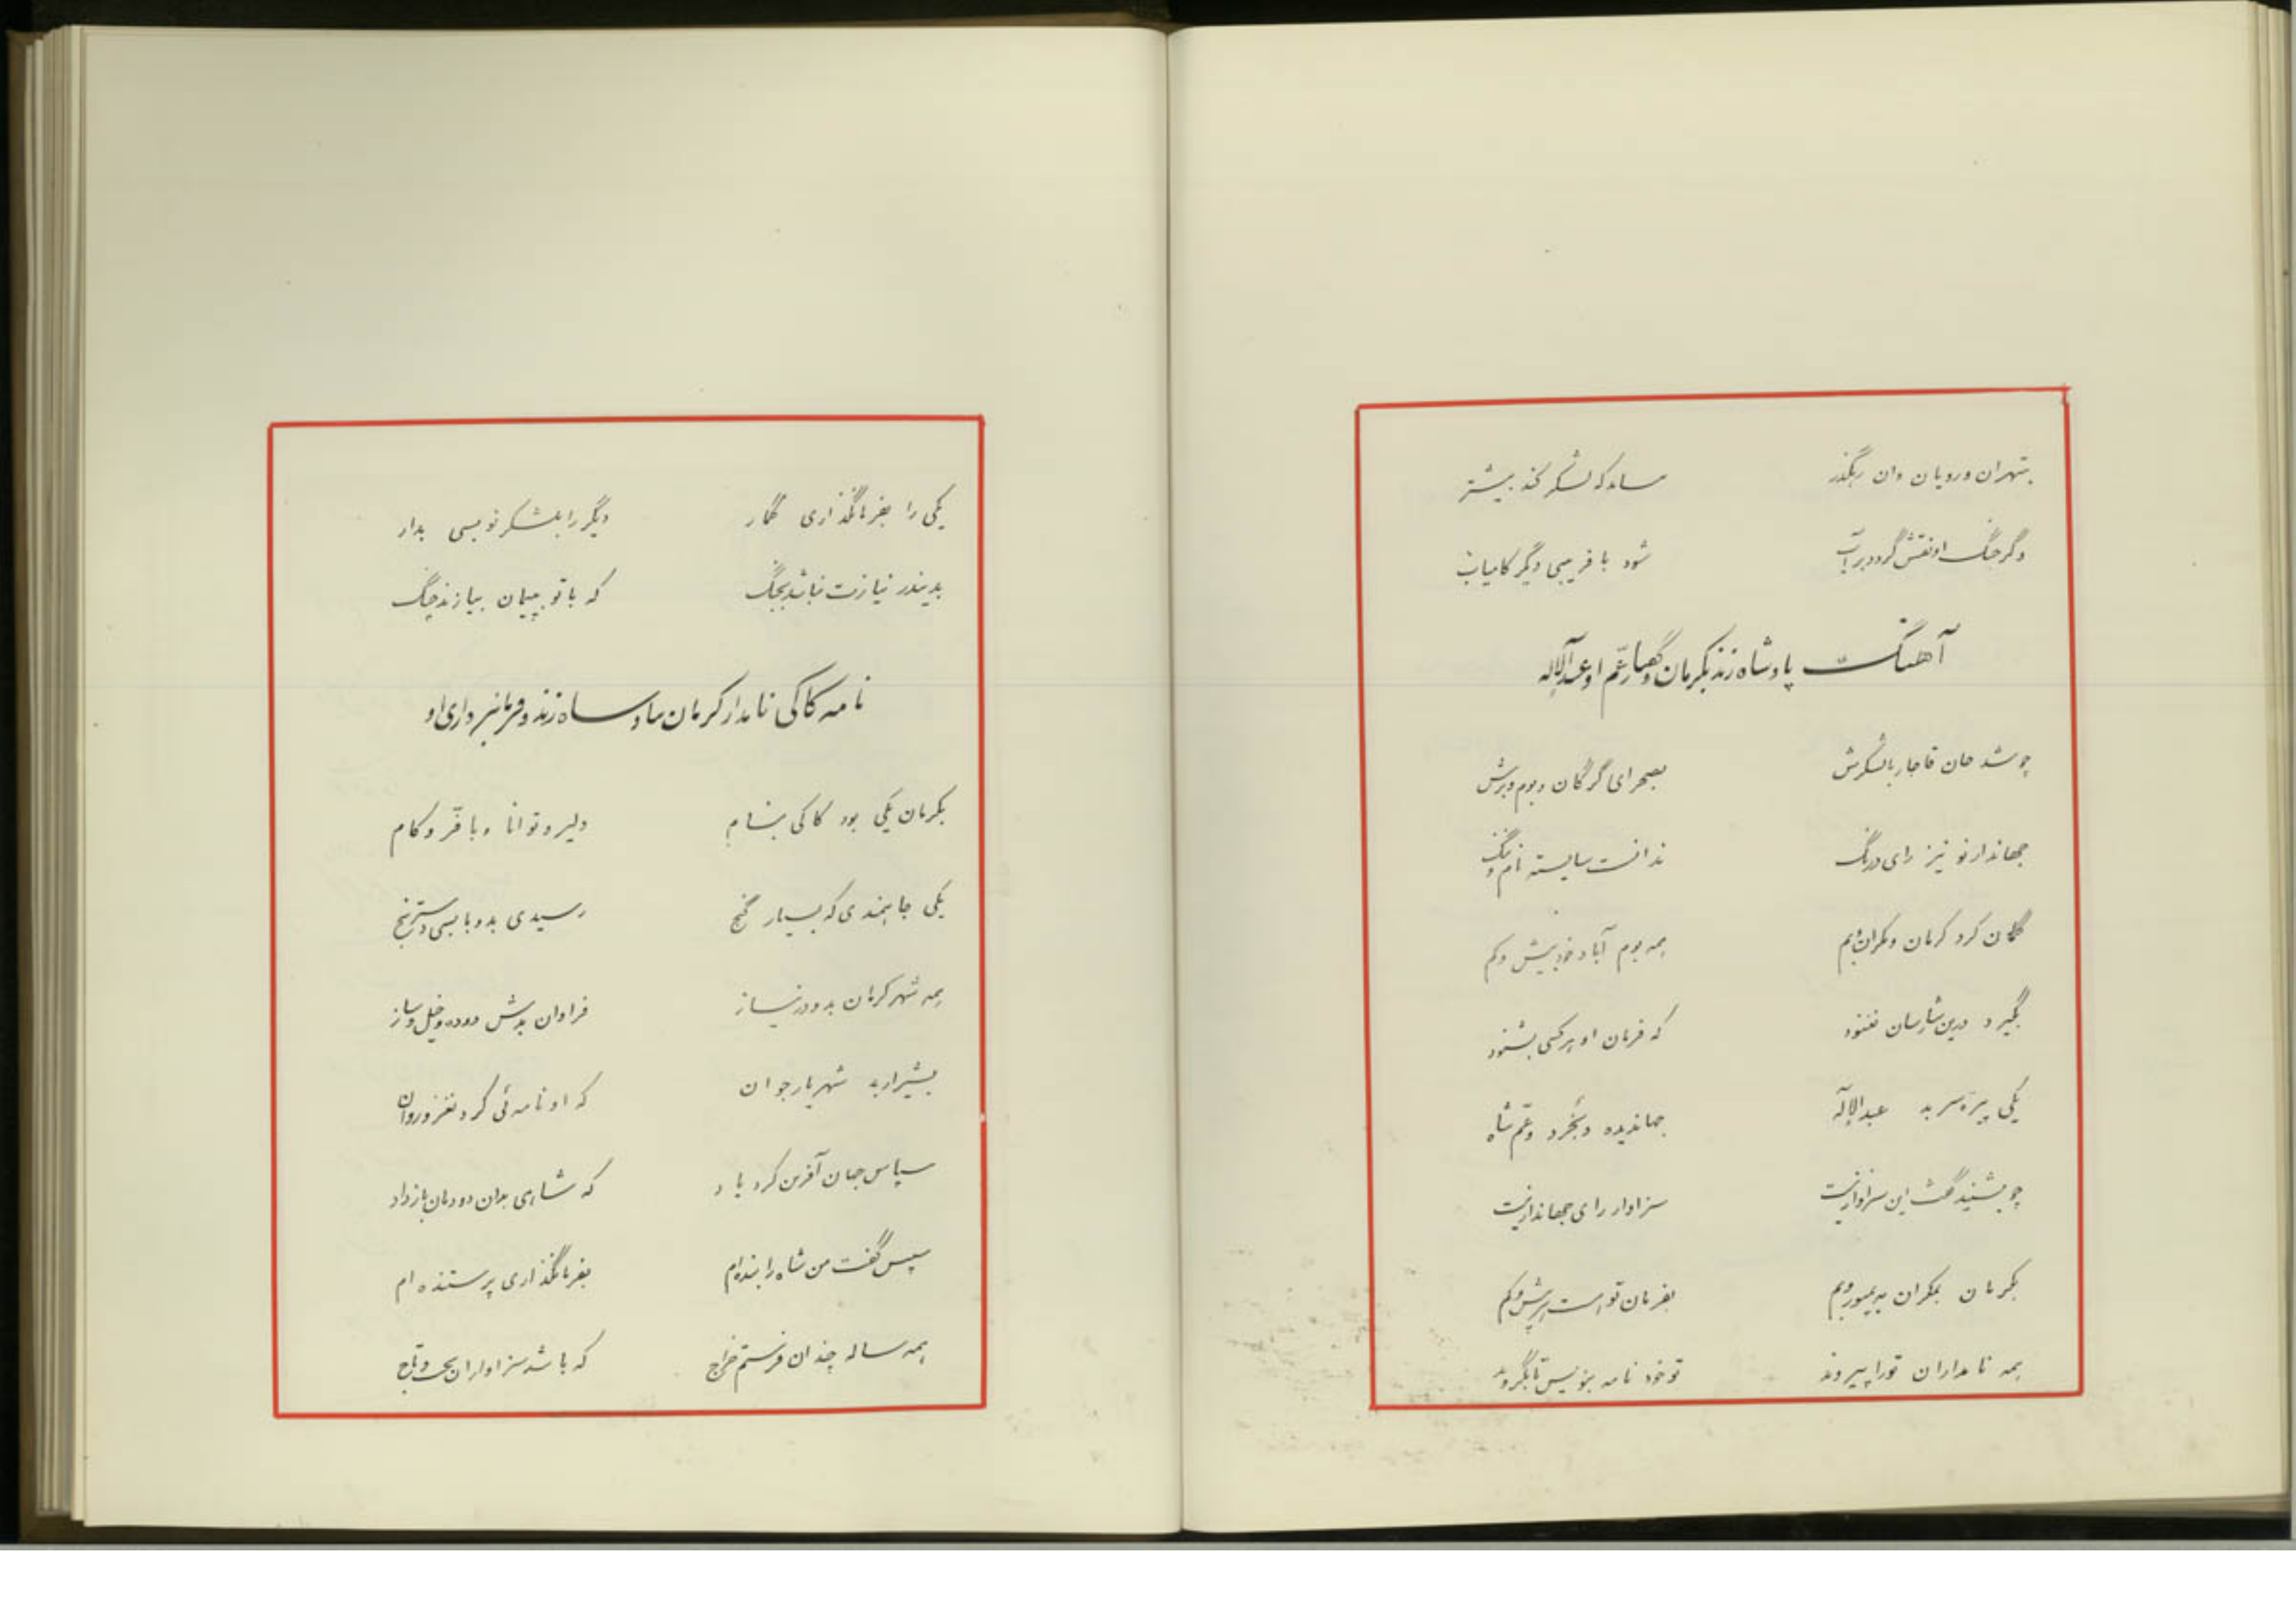 بتهران و رویان و ان رهگذر سامد که لشکر کند بیشتر
وگر جنگ او نقش گردد بر آب شود با فریبی دیگر کامیاب
آهنگ پادشاه زند بکرمان و گفتار عم او عبدالآله
چو شد خان قاجار با لشکرش بصحرای گرگان و بوم و برش
جهاندار نو نیز رای درنگ ندانست شایسته نام و ننگ
گمان کرد کرمان و مکران و بم همه بوم آباد خود بیش و کم
بگیرد درین شارسان نغنود که فرمان او هر کسی بشنود
یکی پیره سر بد عبدالإله جهاندیده و بخرد و عم شاه
چو بشنید گفت این سزاوار نیست سزاوار رای جهاندار نیست
بکرمان بمکران به بمپور و بم بفرمان تو است هر بیش و کم
همه نامداران تو را پیروند تو خود نامه بنویس تا بگروند
یکی را بفرمانگذاری گمار دیگر را بلشکر نویسی بدار
بدیندر نیازت نباشد بجنگ که با تو به پیمان بیازند چنگ
نامه کاکی نامدار کرمان بپادشاه زند و فرمانبرداری او
بکرمان یکی بود کاکی بنام دلیر و توانا و با فر و کام
یکی جاهمندی که بسیار گنج رسیدی بدو با بسی دسترنج
همه شهر کرمان بدو در نیاز فراوان بدش دوده و خیل و ساز
بشیراز به شهریار جوان که او نامه ئی کرد نغز و روان
سپاس جهان آفرین کرد یاد که شاهی بدان دودمان باز داد
سپس گفت من شاه را بنده ام بفرمانگذاری پرستنده ام
همه ساله چندان فرستم خراج که باشد سزاوار ان تخت و تاج